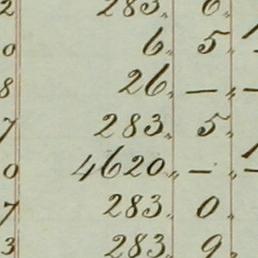 2 283 „ 6 „
0 6 „ 5 „ 1
8 26 „ — „ —
7 283 „ 5 „
0 4620 „ - „ —
7 283 „ 0 „
3 283 „ 9 „